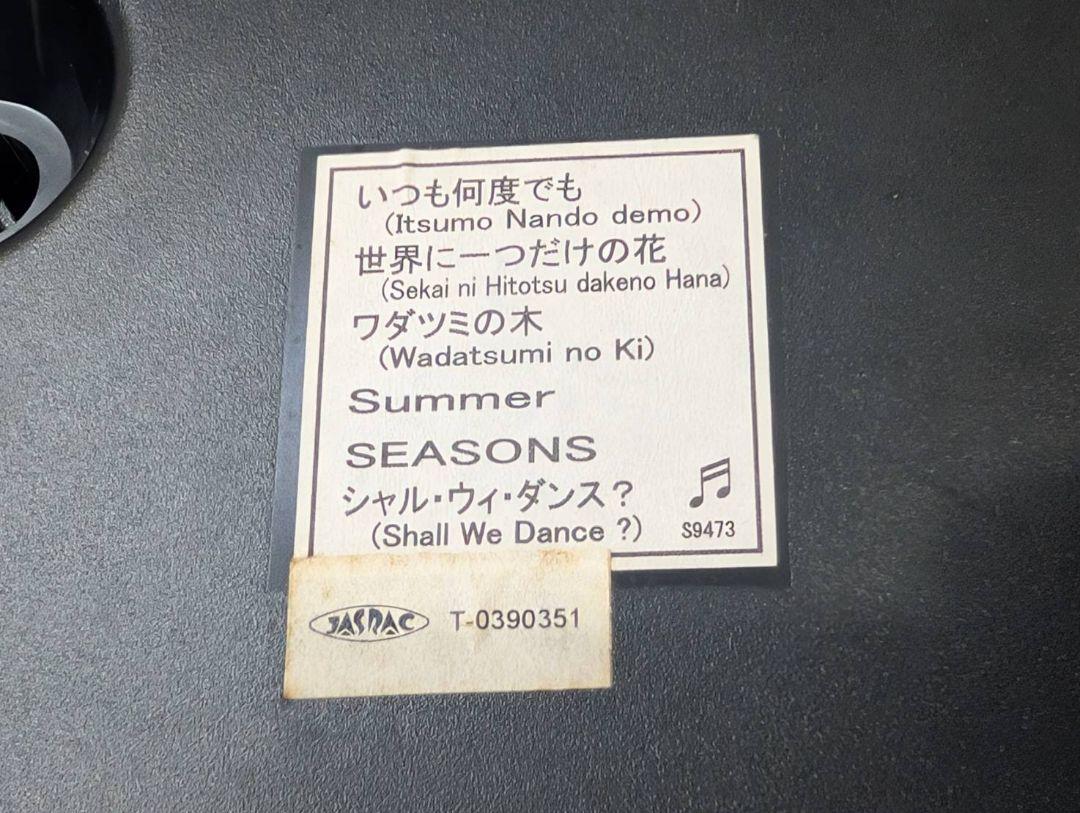 いつも何度でも
(Itsumo Nando demo)
世界に一つだけの花
(Sekai ni Hitotsu dakeno Hana)
ワダツミの木
(Wadatsumi no Ki)
Summer
SEASONS
シャル・ウィ・ダンス?
(Shall We Dance ?)
S9473
JASRAC T-0390351